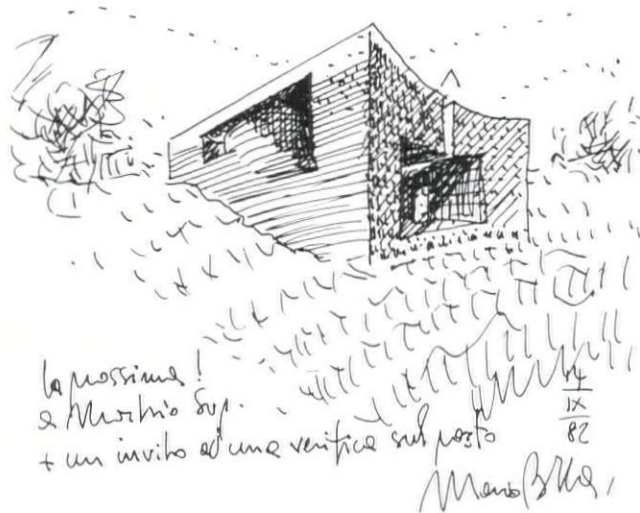 la prossima!
a Morbio Sup.
+ un invito ad una verifica sul posto
14
IX
82
Mario Botta,